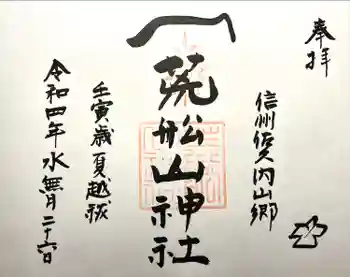 奉拝
信州佐久内山郷
荒船山神社
壬寅歳夏越祓
令和四年水無月二十六日